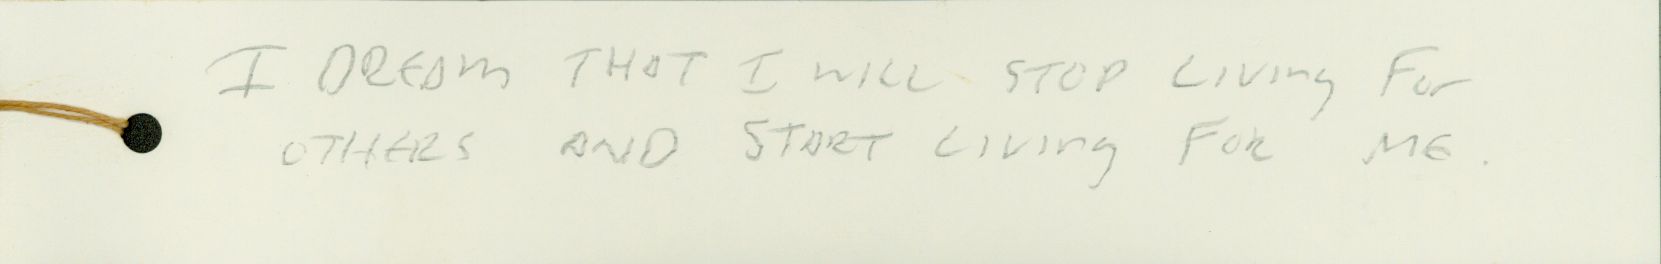 I DREAM THAT I WILL STOP LIVING FOR
OTHERS AND START LIVING FOR ME.